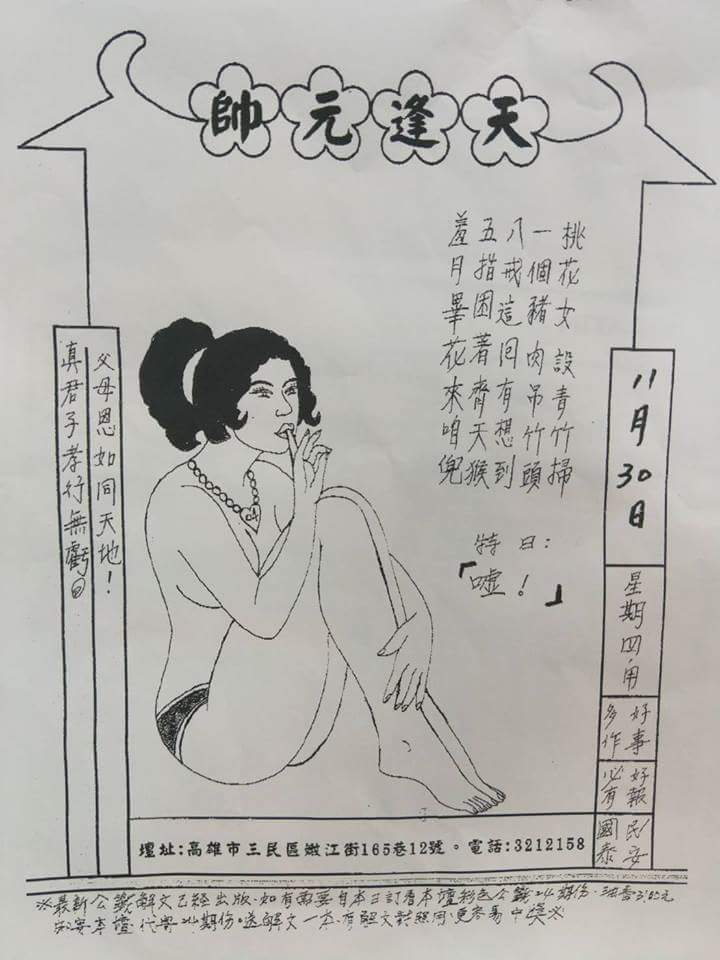 天逢元帥
11月30日
星期四用
好事
多作
好報
必有
民安
國泰
桃花女設青竹掃
一個豬肉吊竹頭
八戒這回有想到
五指困著齊天猴
羞月畢花來咱兜
特曰:
「噓!」
父母恩如同天地!
真君子孝行無虧。
壇址:高雄市三民區嫩江街165巷12號。電話:3212158
※最新公籤解文已經出版.如有需要自本日訂 本壇彩色公籤24期份.油香
本壇.代寄24期份.送解文一本.有解文對照用.更容易中獎※